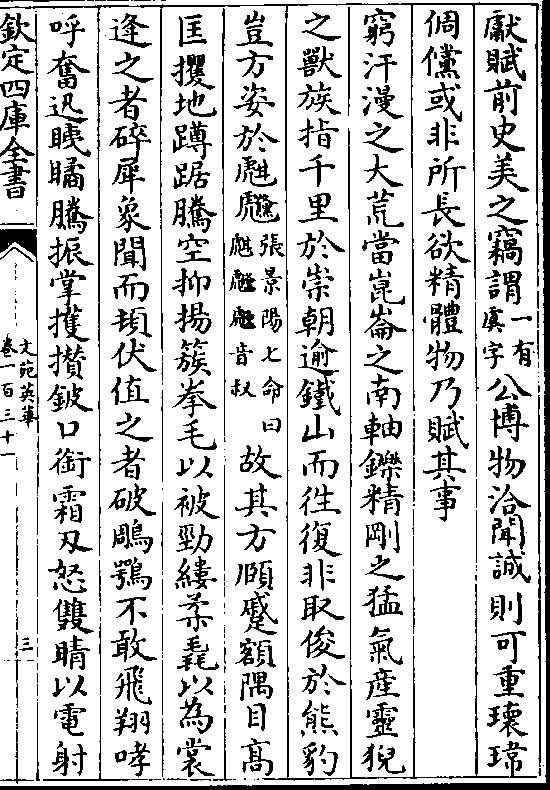 獻賦前史美之竊謂一有虞字公博物洽聞誠則可重瓌瑋
倜儻或非所長欲精體物乃賦其事
窮汗漫之大荒當崑崙之南軸鑠精剛之猛氣產靈猊
之獸族指千里於崇朝逾鐵山而往復非取俊於熊豹
豈方姿於彪張景陽七命曰音叔故其方頤蹙額隅目高
匡攫地蹲踞騰空抑揚簇拳毛以被勁縷柔毳以為裳
逢之者碎犀象聞而頓伏值之者破鵰鶚不敢飛翔哮
呼奮迅眣矞騰振掌擭攢鈹口銜霜刃怒雙睛以電射
欽定四庫全書
文苑英華
卷一百三十一
三